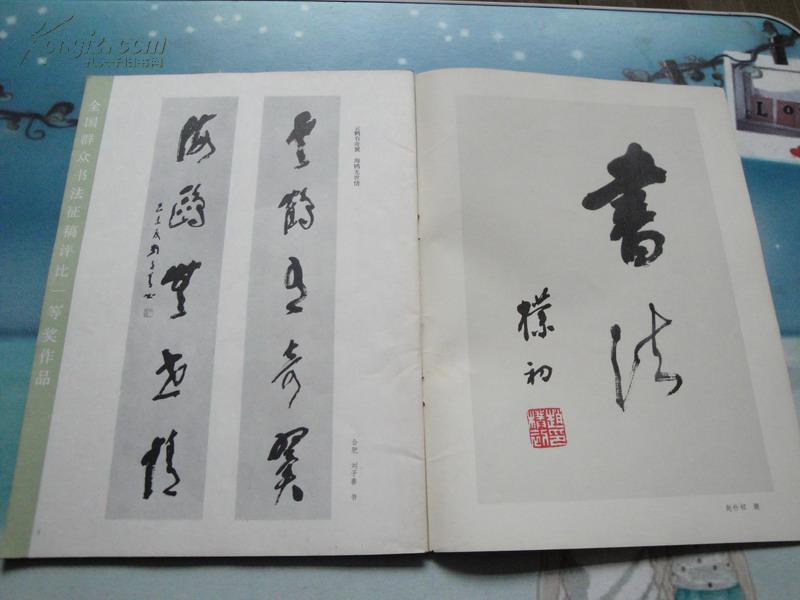 Kongfz.com
孔夫子旧书网
全国群众书法征稿评比一等奖作品
云鹤有奇翼 海鸥无世情
云鹤有奇翼
海鸥無世情
己未冬刘子善书
合肥 刘子善 书
書法
樸初
趙樸初印
赵朴初 题
LO